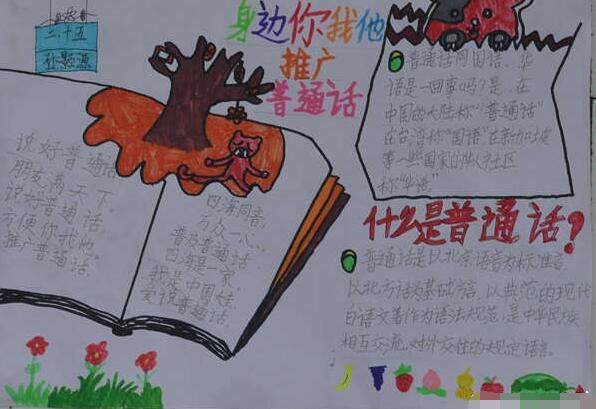 二、十五
孙影源
身边你我他
推广
普通话
普通话同国语、华
语是一回事吗?是,在
中国的大陆称“普通话”
在台湾称“国语”在新加坡
第一些国家的华人社区
称“华语”
说好普通话,
朋友满天下。
说好普通话,
方便你我他。
推广普通话。
四海同音,
万众一心,
普及普通话,
四海是一家,
我是中国娃
爱说普通话。
什么是普通话?
普通话是以北京语音为标准音,
以北方话为基础方言,以典范的现代
白话文著作为语法规范,是中华民族
相互交流,对外交往的规定语言。